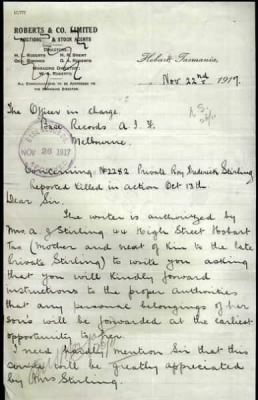 ROBERTS & CO. LIMITED
AUCTIONEERS & STOCK AGENTS
DIRECTORS
MANAGING DIRECTOR
W. S. ROBERTS
ALL COMMUNICATIONS TO BE ADDRESSED TO
THE MANAGING DIRECTOR.
Hobart, Tasmania,
Nov. 22nd 1917.
The Officer in charge
Base Records A I F
Melbourne
NOV 26 1917
Concerning No 2282 Private Roy Frederick Stirling
Reported Killed in action Oct 13th
Dear Sir.
The writer is authorized by
Mrs A J Stirling 44 High Street Hobart
Tas (Mother and next of kin to the late
Private Stirling) to write you asking
that you will kindly forward
instructions to the proper authorities
that any personal belongings of her
sons will be forwarded at the earliest
opportunity to her.
I need hardly mention Sir that this
will be greatly appreciated
by Mrs Stirling.